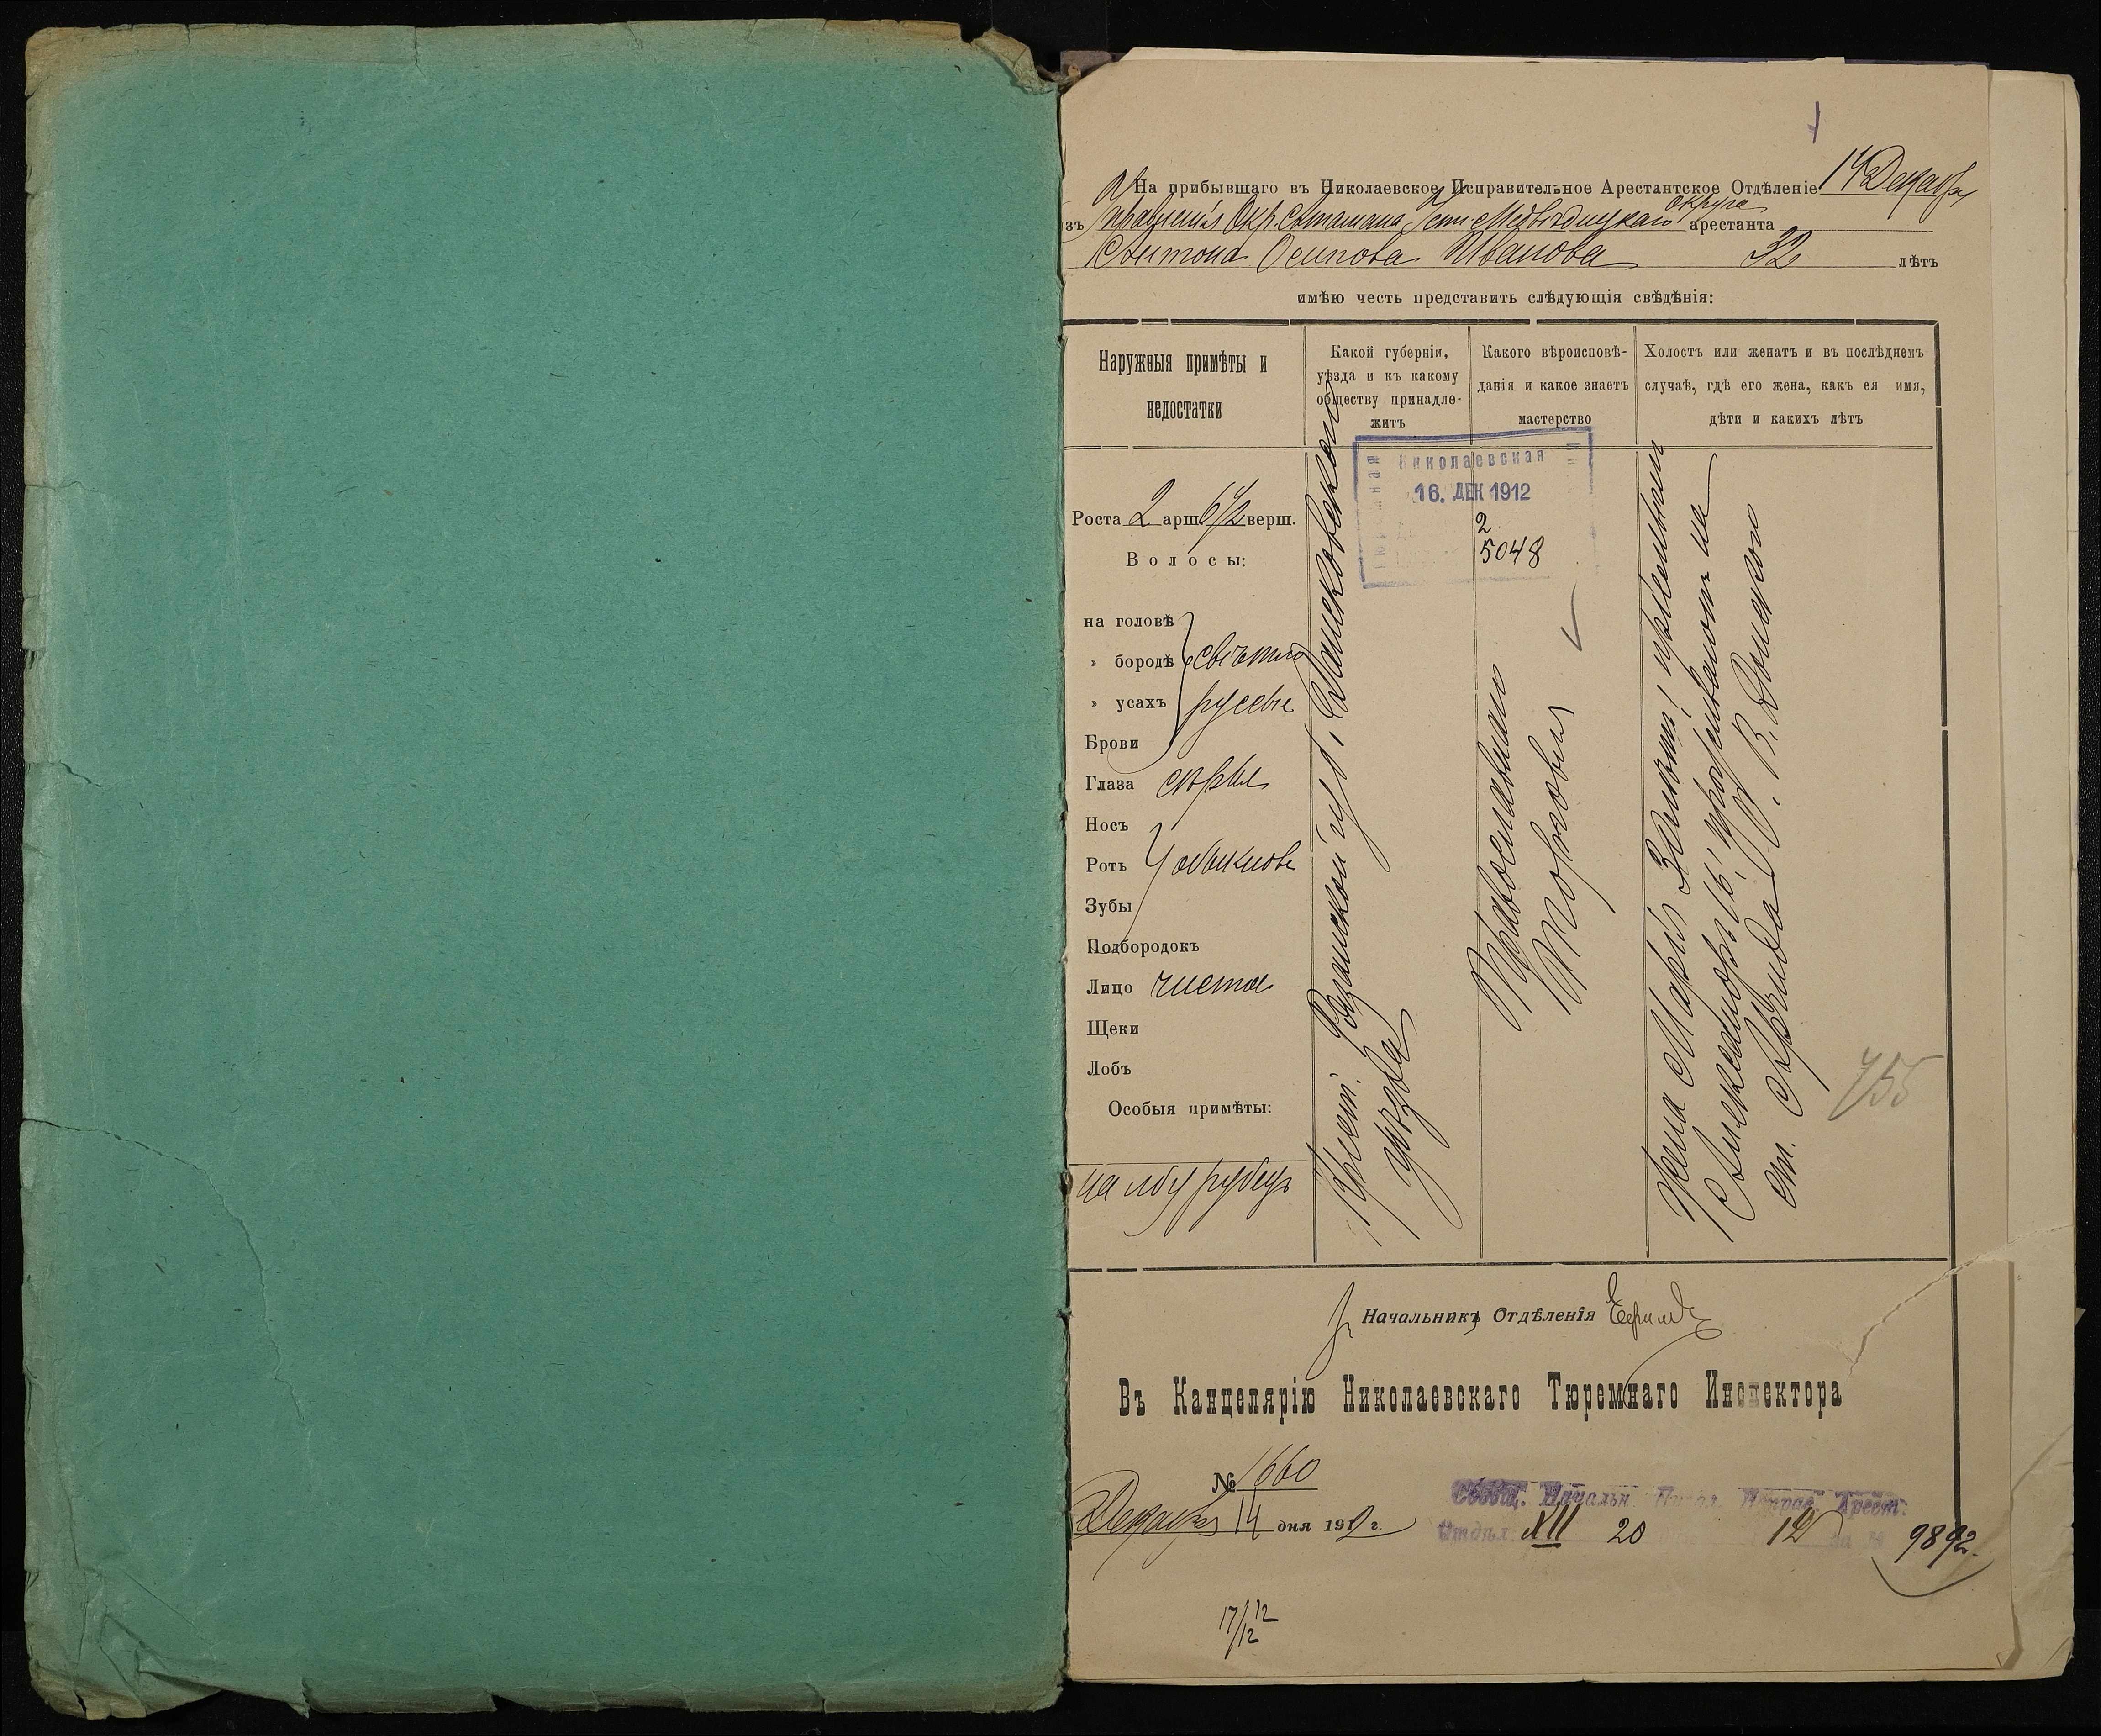 На прибывшаго въ Николаевское Исправительное Арестантское Отдѣленіе 14 Декабря
изъ Правленія Окр. Атамана Усть-Медвѣдицкаго округа арестанта
Антона Осипова Иванова 32 лѣтъ
имѣю честь представить слѣдующія свѣдѣнія:
Наружныя примѣты и
недостатки
Какой губерніи,
уѣзда и къ какому
обществу принадле-
житъ
Какого вѣроисповѣ-
данія и какое знаетъ
мастерство
Холостъ или женатъ и въ послѣднемъ
случаѣ, гдѣ его жена, какъ ея имя,
дѣти и какихъ лѣтъ
Роста 2 арш 6 1/2 верш.
Волосы:
на головѣ
» бородѣ свѣтло
» усахъ русые
Брови
Глаза сѣрые
Носъ
Ротъ обыкнов
Зубы
Подбородокъ
Лицо чистое
Щеки
Лобъ
Особыя примѣты:
на лбу рубецъ
Крест. Рязанской губ.,
уѣзда
Николаевская
16. ДЕК 1912
2
5048
Православный
Торговецъ
Жена Марія
ст. Арчида О. В. Донского
755
Начальникъ Отдѣленія
Въ Канцелярію Николаевскаго Тюремнаго Инспектора
№ 1660
Декабря 14 дня 1912 г.
Сообщ. Начальн. Никол. Исправ. Арест.
Отдѣл XII 20 12 за № 9892.
17/12 12